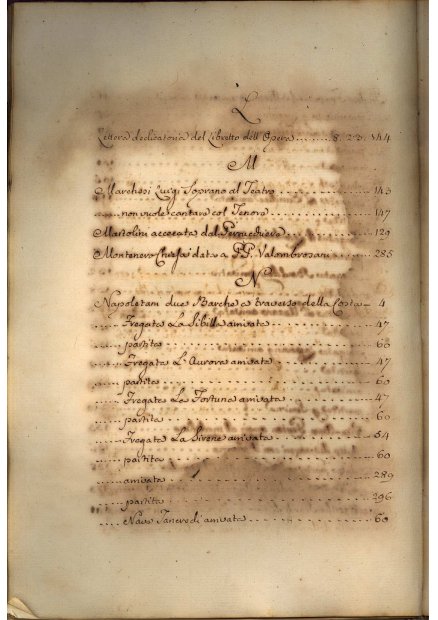 L
Lettera dedicatoria del Libretto dell' Opera ....... 8. 23. 144
M
Marchesi Luigi Soprano al Teatro ............. 143
..... non vuole cantare col Tenore ............. 147
Martolini accecata dal Parucchiere ............ 129
Montenero Chiesa data a P.P. Valombrosani ...... 285
N
Napoletani due Barche a traverso della Costa – 4
..... Fregata La Sibilla arrivata ............. 47
..... partita ............. 60
..... Fregata L'Aurora arrivata ............. 47
..... partita ............. 60
..... Fregata La Fortuna arrivata ............. 47
..... partita ............. 60
..... Fregata La Sirena arrivata ............. 54
..... partita ............. 60
..... arrivata ............. 289
..... partita ............. 296
..... Nave Tancredi arrivata ............. 60